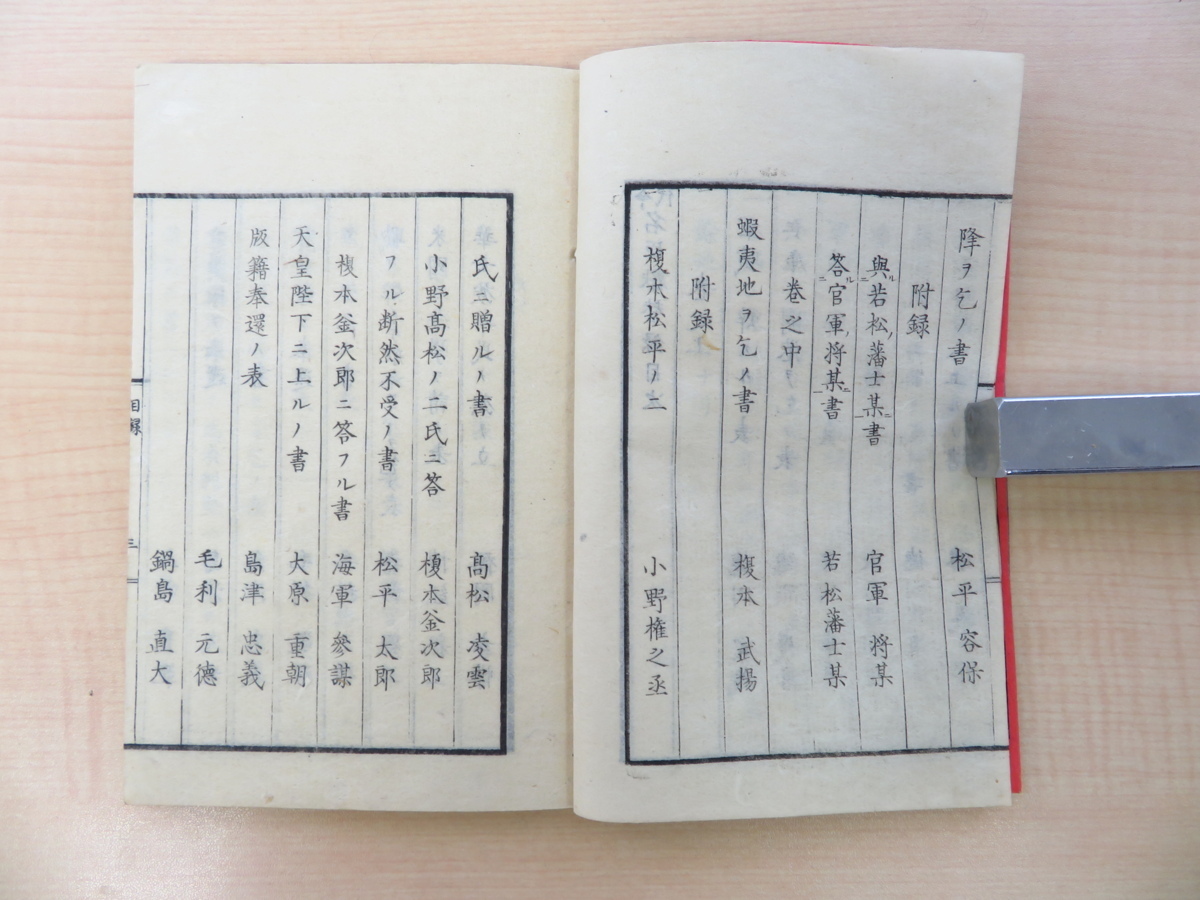 降ヲ乞ノ書 松平 容保
附録
與ル若松ノ藩士某ニ書 官軍 将某
答ル官軍ノ将某ニ書 若松藩士某
卷之中
蝦夷地ヲ乞ノ書 榎本 武揚
附録
榎本松平ノ二 小野権之丞
氏ニ贈ルノ書 髙松 凌雲
小野髙松ノ二氏ニ答 榎本釡次郎
フル断然不受ノ書 松平 太郎
榎本釡次郎ニ答フル書 海軍 參謀
天皇陛下ニ上ルノ書 大原 重朝
版籍奉還ノ表 島津 忠義
毛利 元德
鍋島 直大
目録
三